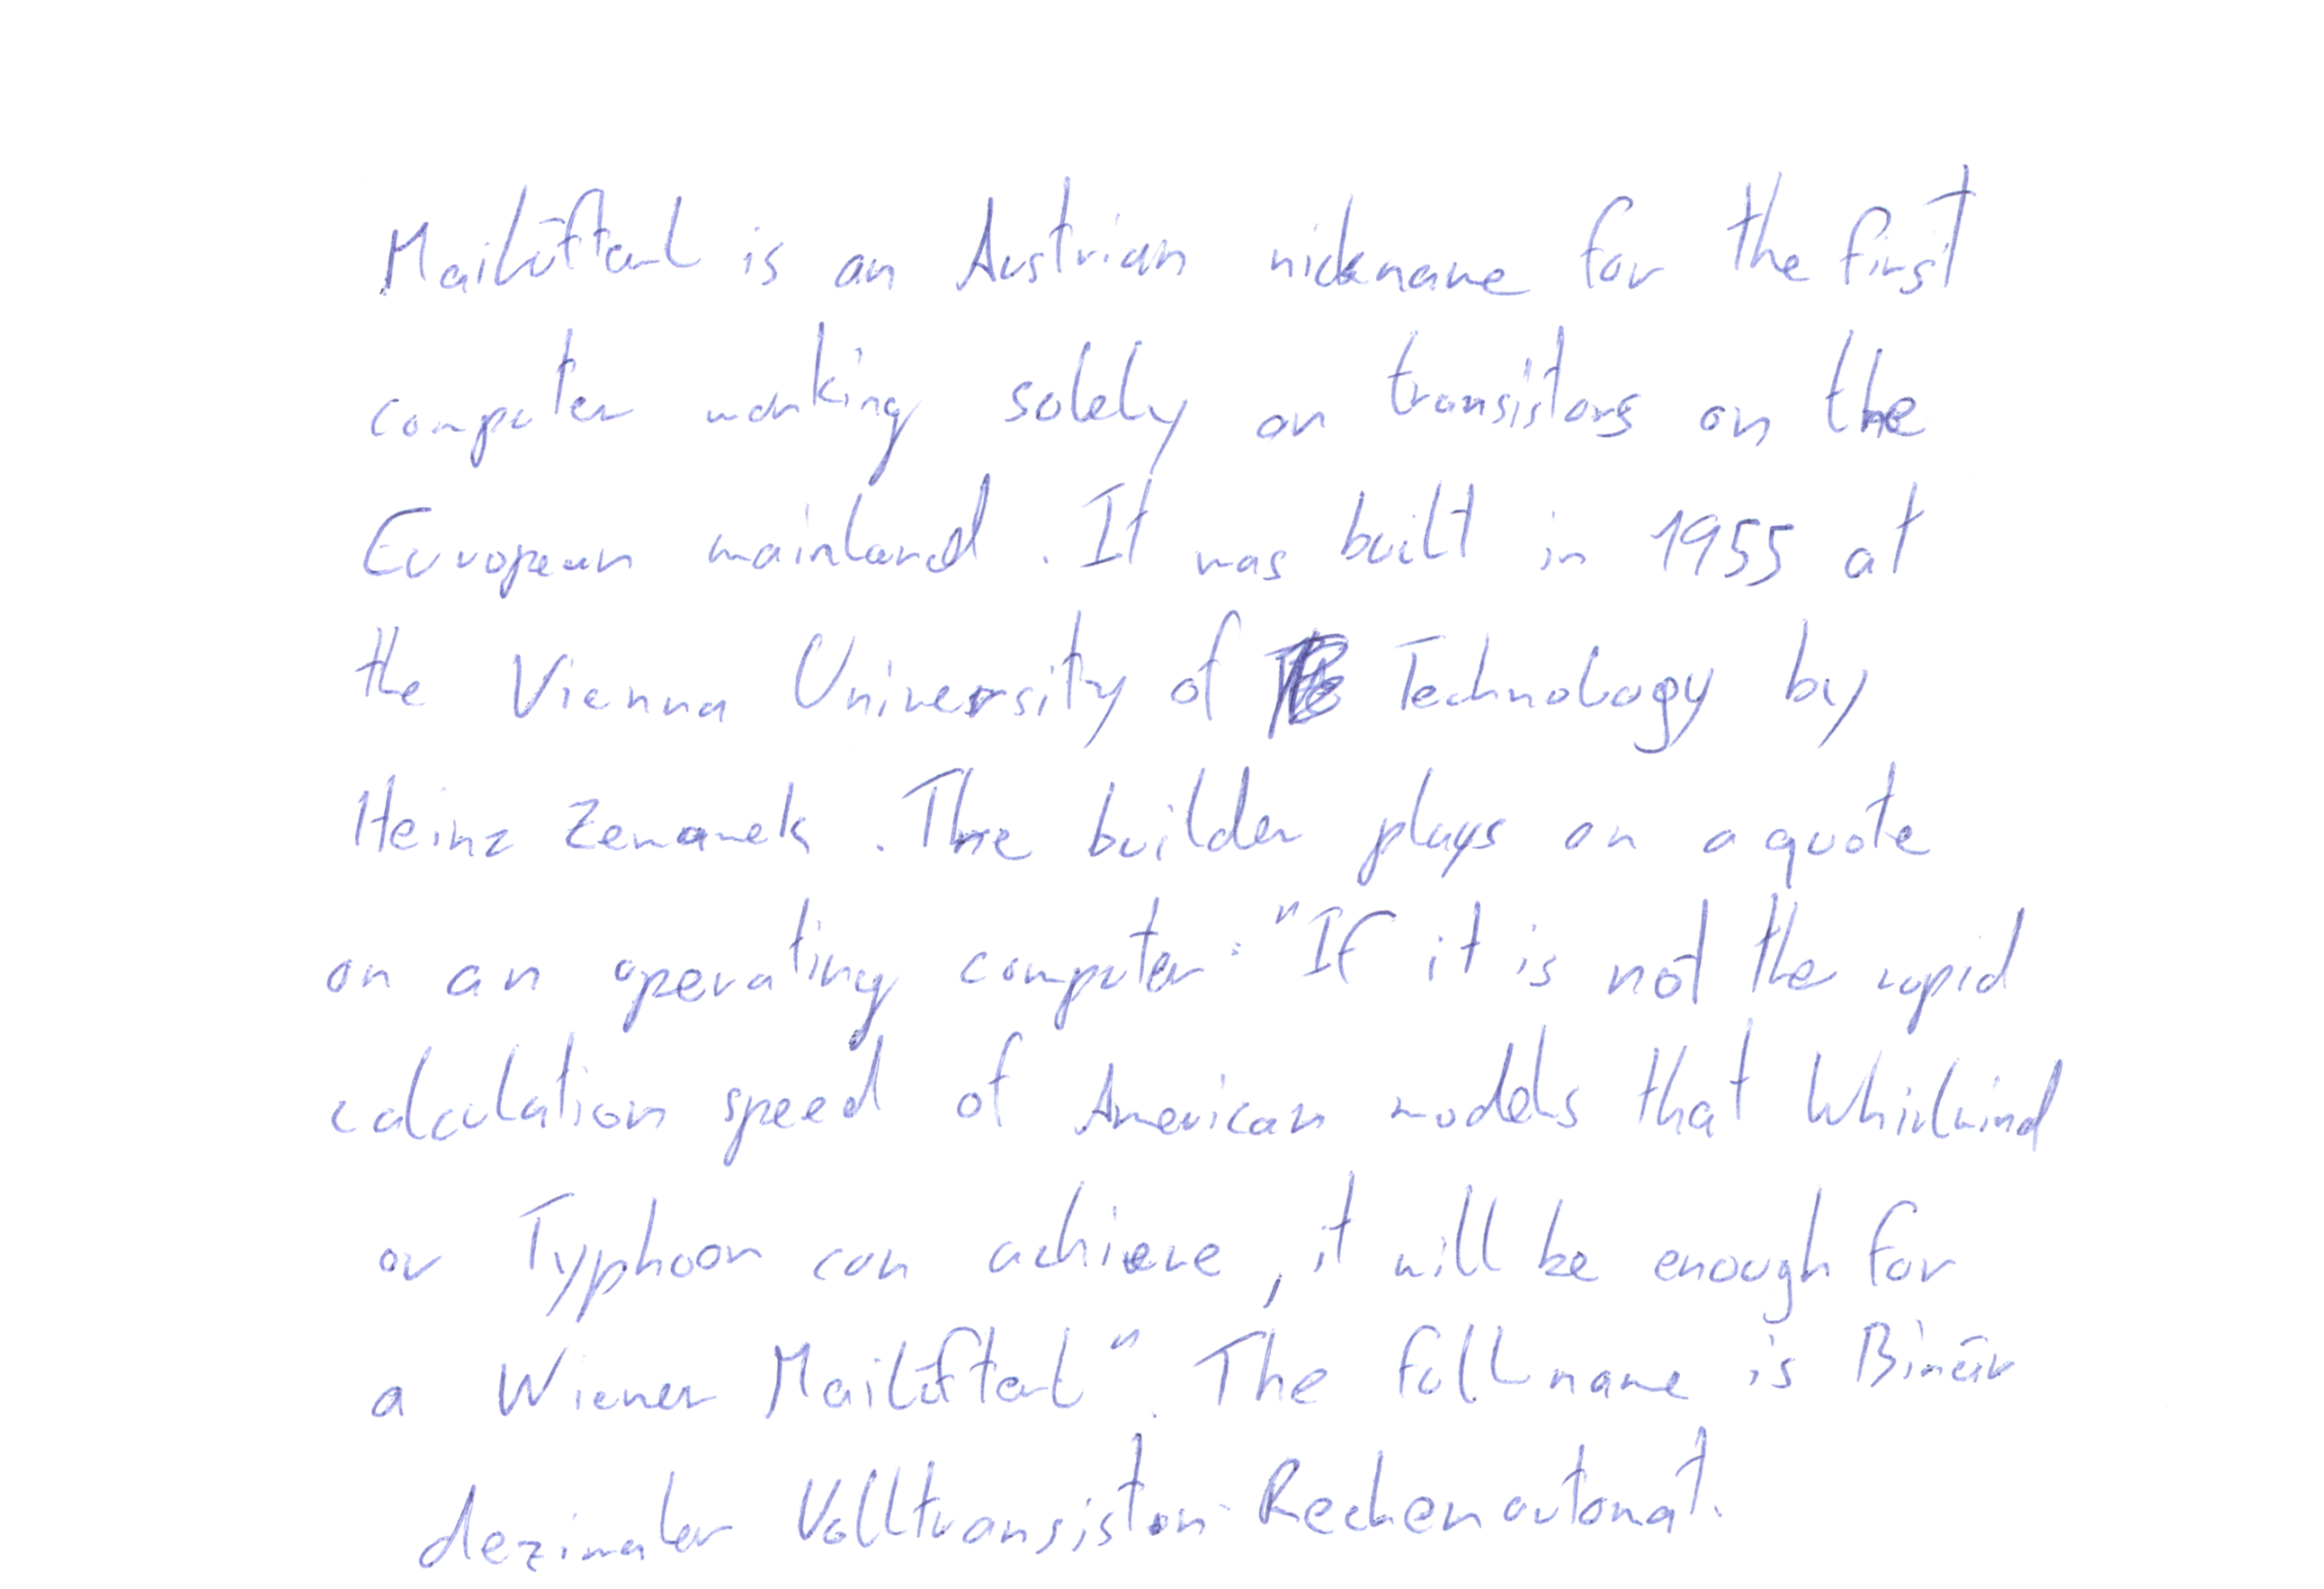 Mailüfterl is an Austrian nickname for the first
computer working solely on transistors on the
European mainland. It was built in 1955 at
the Vienna University of Technology by
Heinz Zemanek. The builder plays on a quote
on an operating computer: "If it is not the rapid
calculation speed of American models that Whirlwind
or Typhoon can achieve, it will be enough for
a Wiener Mailüfterl". The full name is Binär
dezimaler Volltransistor-Rechenautomat.